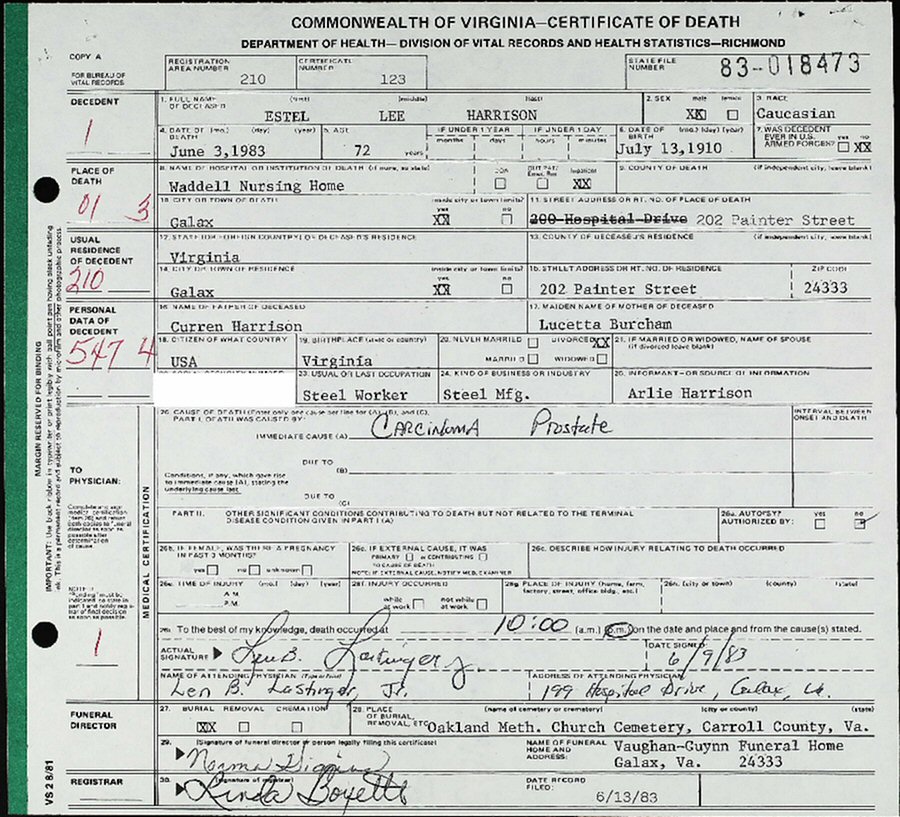 COMMONWEALTH OF VIRGINIA—CERTIFICATE OF DEATH
DEPARTMENT OF HEALTH— DIVISION OF VITAL RECORDS AND HEALTH STATISTICS—RICHMOND
COPY A
FOR BUREAU OF VITAL RECORDS
REGISTRATION AREA NUMBER 210
CERTIFICATE NUMBER 123
STATE FILE NUMBER 83-018473
DECEDENT
1
1. FULL NAME OF DECEASED (first) (middle) (last)
ESTEL LEE HARRISON
2. SEX male female XX
3. RACE Caucasian
4. DATE OF DEATH (mo.) (day) (year) June 3,1983
5. AGE 72 years
IF UNDER 1 YEAR months days
IF UNDER 1 DAY hours minutes
6. DATE OF BIRTH (mo.) (day) (year) July 13,1910
7. WAS DECEDENT EVER IN U.S. ARMED FORCES? yes no XX
PLACE OF DEATH
01 3
8. NAME OF HOSPITAL OR INSTITUTION OF DEATH (if none, so state)
Waddell Nursing Home
DOA OUT PAT/ Emer. Rm Inpatient XX
9. COUNTY OF DEATH (if independent city, leave blank)
10. CITY OR TOWN OF DEATH inside city or town limits? yes no
Galax XX
11. STREET ADDRESS OR RT. NO. OF PLACE OF DEATH
200 Hospital Drive 202 Painter Street
USUAL RESIDENCE OF DECEDENT
210
12. STATE (OR FOREIGN COUNTRY) OF DECEASED'S RESIDENCE
Virginia
13. COUNTY OF DECEASED'S RESIDENCE (if independent city, leave blank)
14. CITY OR TOWN OF RESIDENCE inside city or town limits? yes no
Galax XX
15. STREET ADDRESS OR RT. NO. OF RESIDENCE ZIP CODE
202 Painter Street 24333
PERSONAL DATA OF DECEDENT
547 4
16. NAME OF FATHER OF DECEASED
Curren Harrison
17. MAIDEN NAME OF MOTHER OF DECEASED
Lucetta Burcham
18. CITIZEN OF WHAT COUNTRY
USA
19. BIRTHPLACE (state or country)
Virginia
20. NEVER MARRIED DIVORCED XX
MARRIED WIDOWED
21. IF MARRIED OR WIDOWED, NAME OF SPOUSE (if divorced leave blank)
23. USUAL OR LAST OCCUPATION
Steel Worker
24. KIND OF BUSINESS OR INDUSTRY
Steel Mfg.
25. INFORMANT—OR SOURCE OF INFORMATION
Arlie Harrison
MARGIN RESERVED FOR BINDING
IMPORTANT: Use black ribbon in typewriter or print legibly with ball point pen having black unfading ink. This is a permanent record and subject to reproduction by microfilm and other photographic process.
TO PHYSICIAN:
Complete and sign medical certification (item 26) and return both copies to funeral director as soon as possible after determination of cause.
MEDICAL CERTIFICATION
26. CAUSE OF DEATH (Enter only one cause per line for (A), (B), and (C).
PART I. DEATH WAS CAUSED BY:
INTERVAL BETWEEN ONSET AND DEATH
IMMEDIATE CAUSE (A) Carcinoma Prostate
DUE TO
(B)
Conditions, if any, which gave rise to immediate cause (A), stating the underlying cause last
DUE TO
(C)
PART II. OTHER SIGNIFICANT CONDITIONS CONTRIBUTING TO DEATH BUT NOT RELATED TO THE TERMINAL DISEASE CONDITION GIVEN IN PART I (A)
26a. AUTOPSY? AUTHORIZED BY: yes no
26b. IF FEMALE, WAS THERE A PREGNANCY IN PAST 3 MONTHS?
yes no unknown
26c. IF EXTERNAL CAUSE, IT WAS
PRIMARY or CONTRIBUTING
TO CAUSE OF DEATH
NOTE: IF EXTERNAL CAUSE, NOTIFY MED. EXAMINER
DESCRIBE HOW INJURY RELATING TO DEATH OCCURRED
NOTE:
"Pending" must be indicated as state in part I and notify registrar of final decision as soon as possible.
1
26e. TIME OF INJURY (mo.) (day) (year)
A.M.
P.M.
26f. INJURY OCCURRED
while at work not while at work
26g. PLACE OF INJURY (home, farm, factory, street, office bldg., etc.)
26h. (city or town) (county) (state)
To the best of my knowledge, death occurred at 10:00 (a.m.) (p.m.) on the date and place and from the cause(s) stated.
ACTUAL SIGNATURE Len B. Lastinger Jr.
DATE SIGNED: 6/9/83
NAME OF ATTENDING PHYSICIAN (Type or Print)
Len B. Lastinger, Jr.
ADDRESS OF ATTENDING PHYSICIAN
199 Hospital Drive, Galax, Va.
FUNERAL DIRECTOR
27. BURIAL REMOVAL CREMATION
XX
28. PLACE OF BURIAL, REMOVAL, ETC. (name of cemetery or crematory) (city or county) (state)
Oakland Meth. Church Cemetery, Carroll County, Va.
29. (Signature of funeral director or person legally filing this certificate)
Norma
NAME OF FUNERAL HOME AND ADDRESS:
Vaughan-Guynn Funeral Home
Galax, Va. 24333
REGISTRAR
30. (signature of registrar)
Linda Boyette
DATE RECORD FILED: 6/13/83
VS 2 8/81